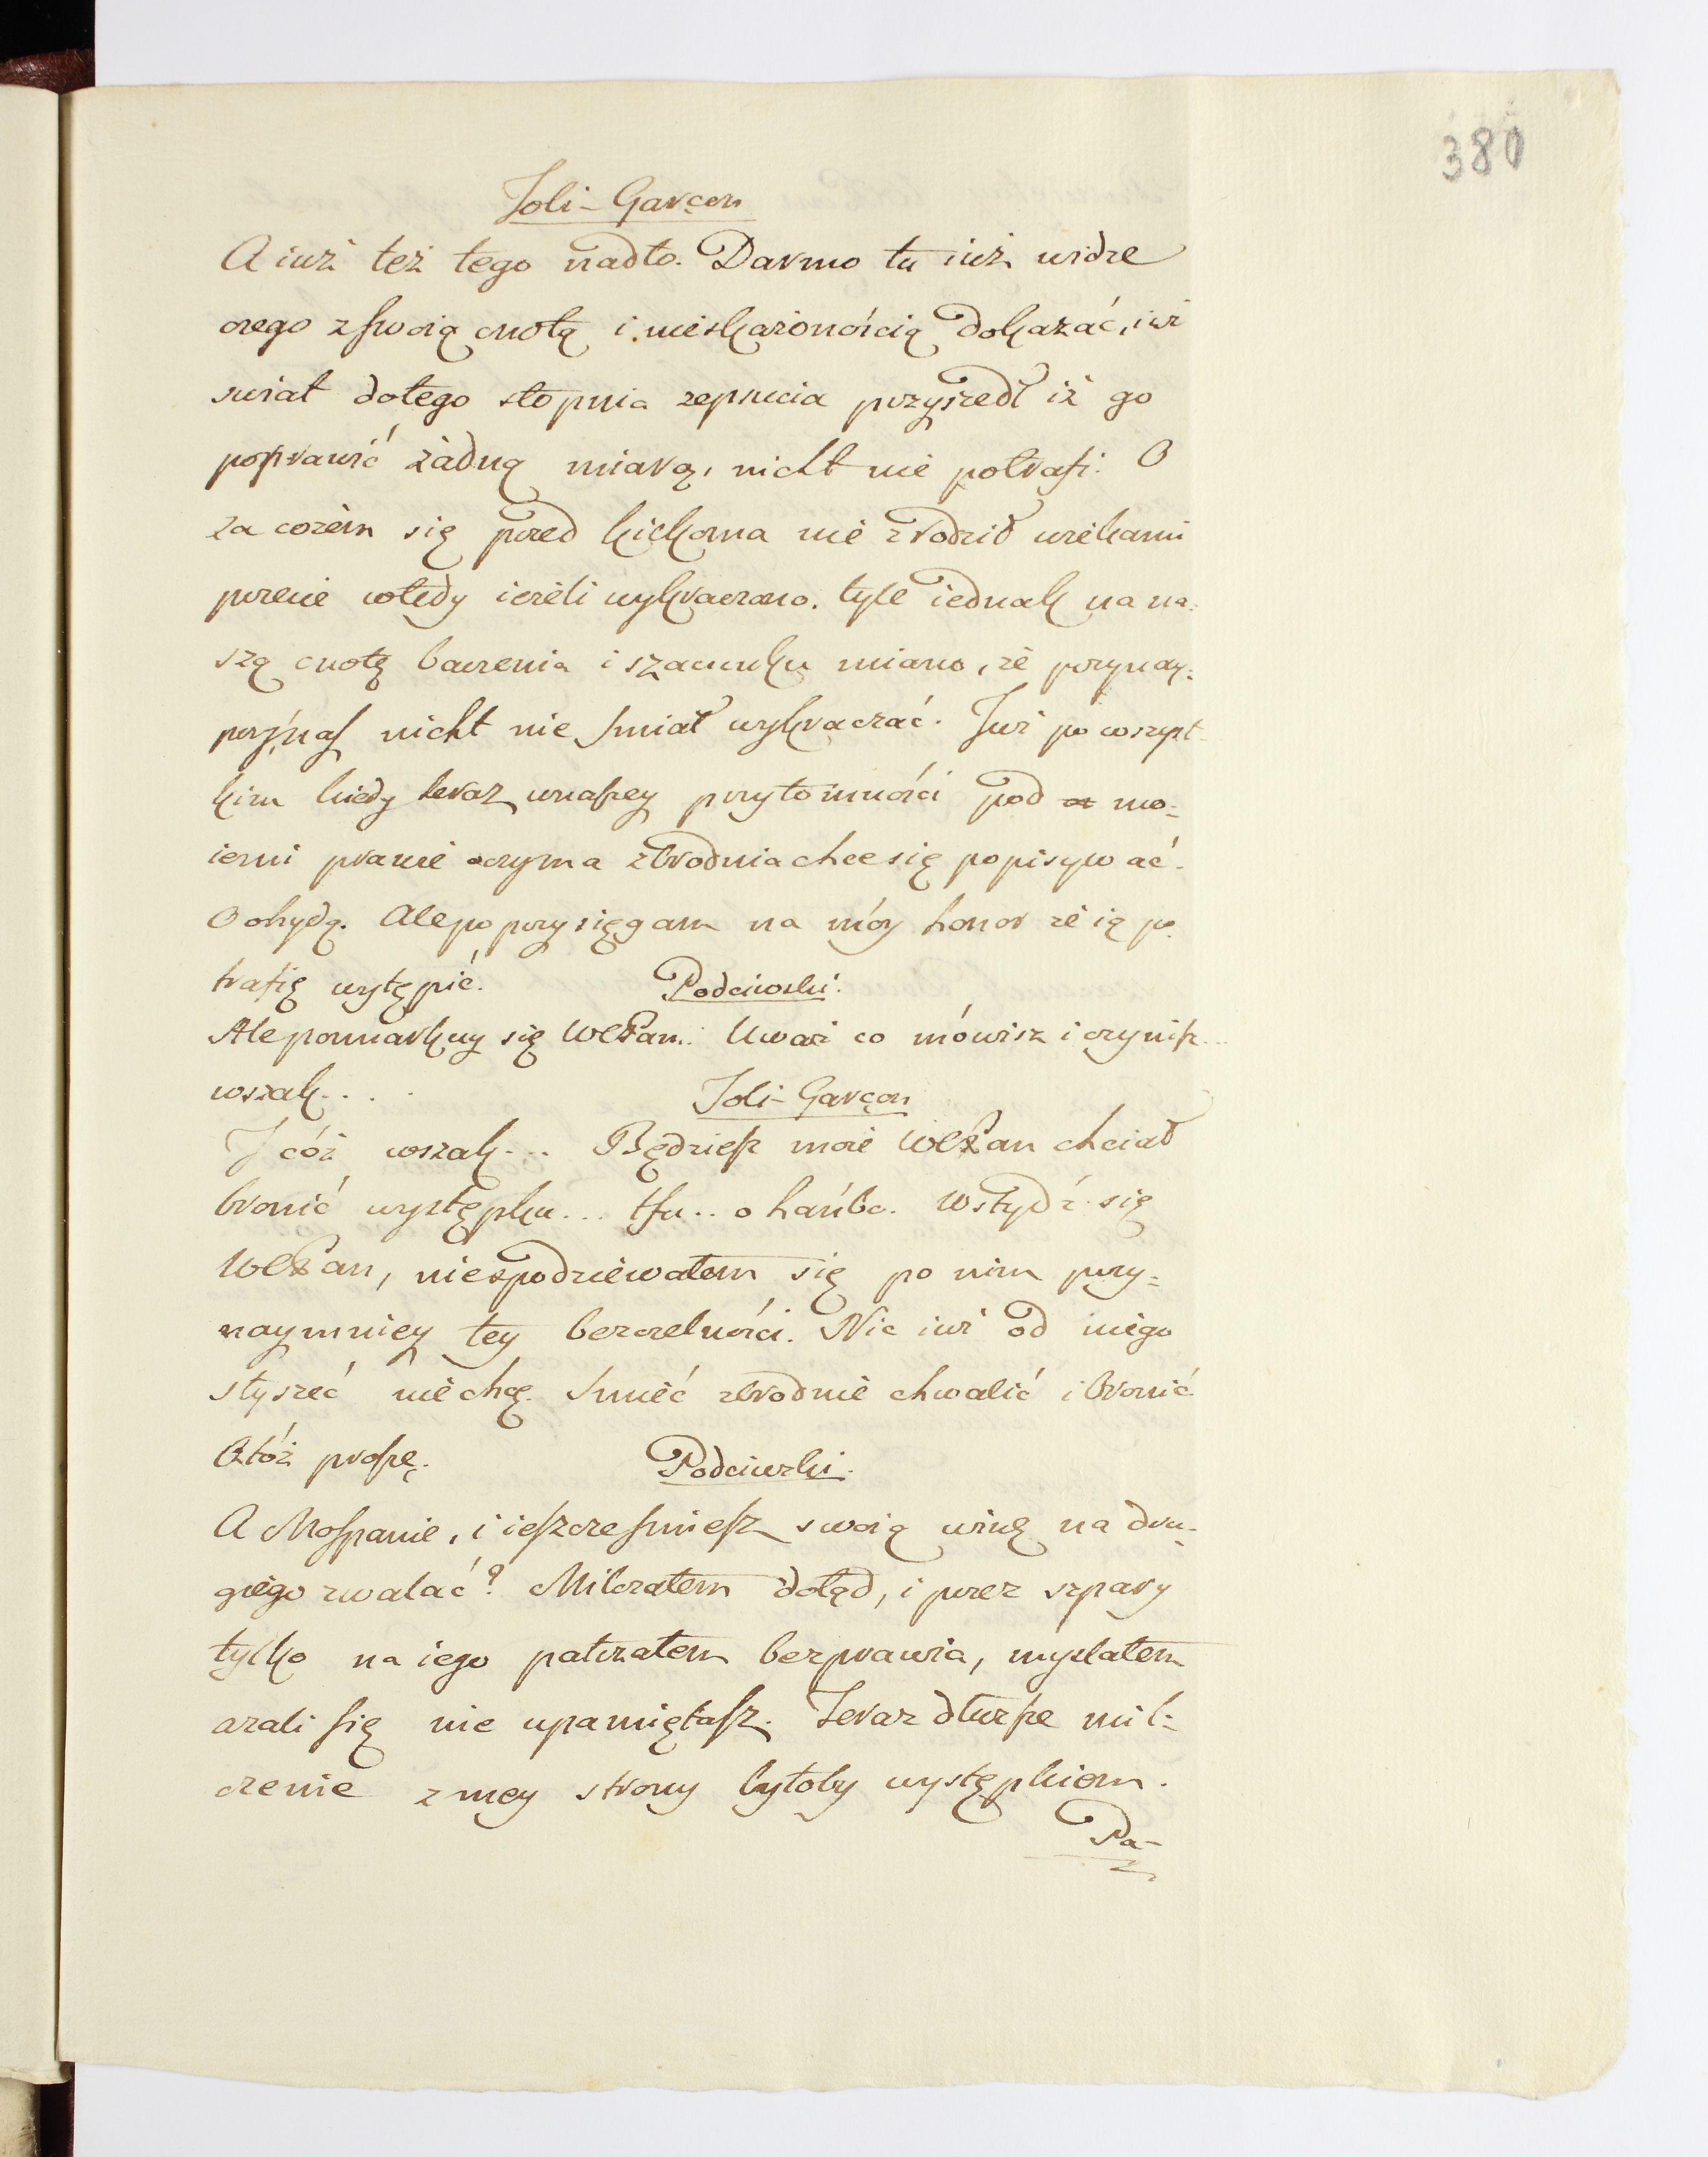 380
Joli-Garçon
A iuż też tego nadto. Darmo tu iuż widzę
czego z swoią cnotą i nieskażonością dokazać, iuż
swiat do tego stopnia zepsucia przyszedł iż go
poprawić żadną miarą, nicht nie potrafi. O
za cożem się przed kielkoma nie zrodził wiekami
przecie wtedy ieżeli wykraczano. tyle iednak na na-
szą cnotę baczenia i szacunku miano, że przynay-
przy nas nicht nie smiał wykraczać. Już po wszyst-
kim kiedy teraz w naszey przytomności pod mo-
iemi prawie oczyma zbrodnia chce się popisywać.
O ohydą. Ale poprzysięgam na móy honor że ią po-
trafię wytępić. Podciwski.
Ale pomiarkuy się WPan.. Uważ co mówisz i czynisz...
wszak....
Joli-Garçon
I cóż wszak... Będziesz może WPan chciał
bronić występku... tfu.. o hańbo. Wstydź się
WPan, niespodziewałem się po nim przy-
naymniey tey bezczelności. Nic iuż od niego
słyszeć nie chcę. Smieć zbrodnie chwalić i bronić
Otóż proszę. Podciwski.
A Mospanie, i ieszcze smiesz swoią winę na dru-
giego zwalać? Milczałem dotąd, i przez szpary
tylko na iego patrzałem bezprawia, myslałem
azali się nie upamiętasz. Teraz dłuższe mil-
czenie z mey strony byłoby występkiem.
Pa-